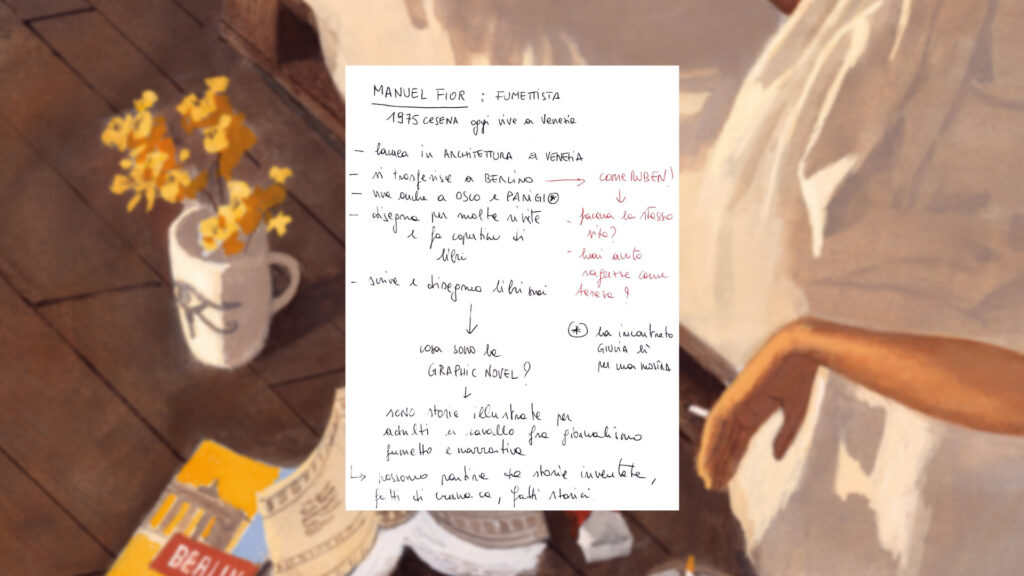 MANUEL FIOR : FUMETTISTA
1975 CESENA oggi vive a Venezia
- laurea in ARCHITETTURA a VENEZIA
- si trasferisce a BERLINO → COME RUBEN!
- vive anche a OSLO e PARIGI *
- disegna per molte riviste
e fa copertine di
libri
↓
- faceva la stessa
vita?
- hai avuto
ragazze come
teresa?
- scrive e disegna libri suoi
↓
* ha incontrato
GIULIA lì
per una mostra
cosa sono le
GRAPHIC NOVEL?
↓
sono storie illustrate per
adulti a cavallo fra giornalismo
fumetto e narrativa
↳ possono partire da storie inventate,
fatti di cronaca, fatti storici
BERLIN